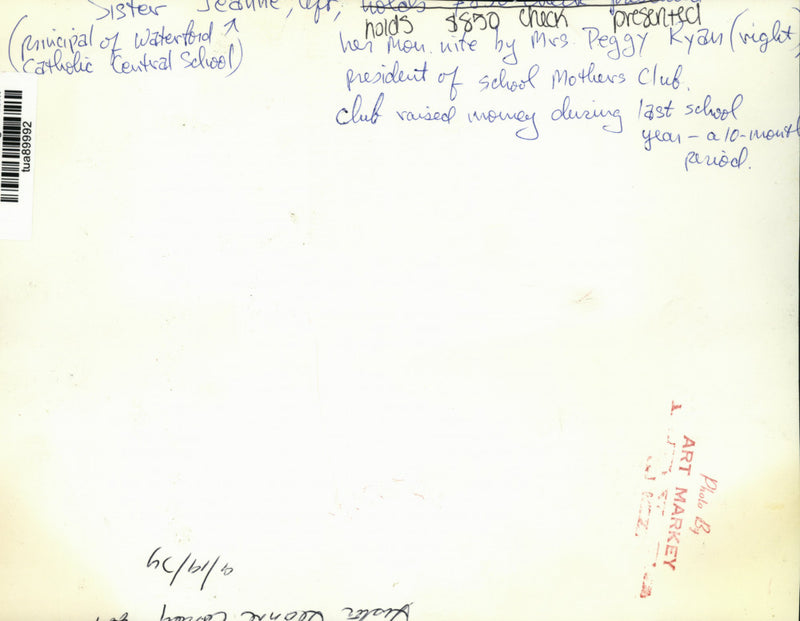 Sister Jeanne, left, holds $850 check presented
(principal of Waterford
Catholic Central School)
her Mon. nite by Mrs. Peggy Ryan (right)
president of school Mothers Club.
Club raised money during last school
year - a 10-month
period.
tua89992
Photo By
ART MARKEY
9/19/74
Sister